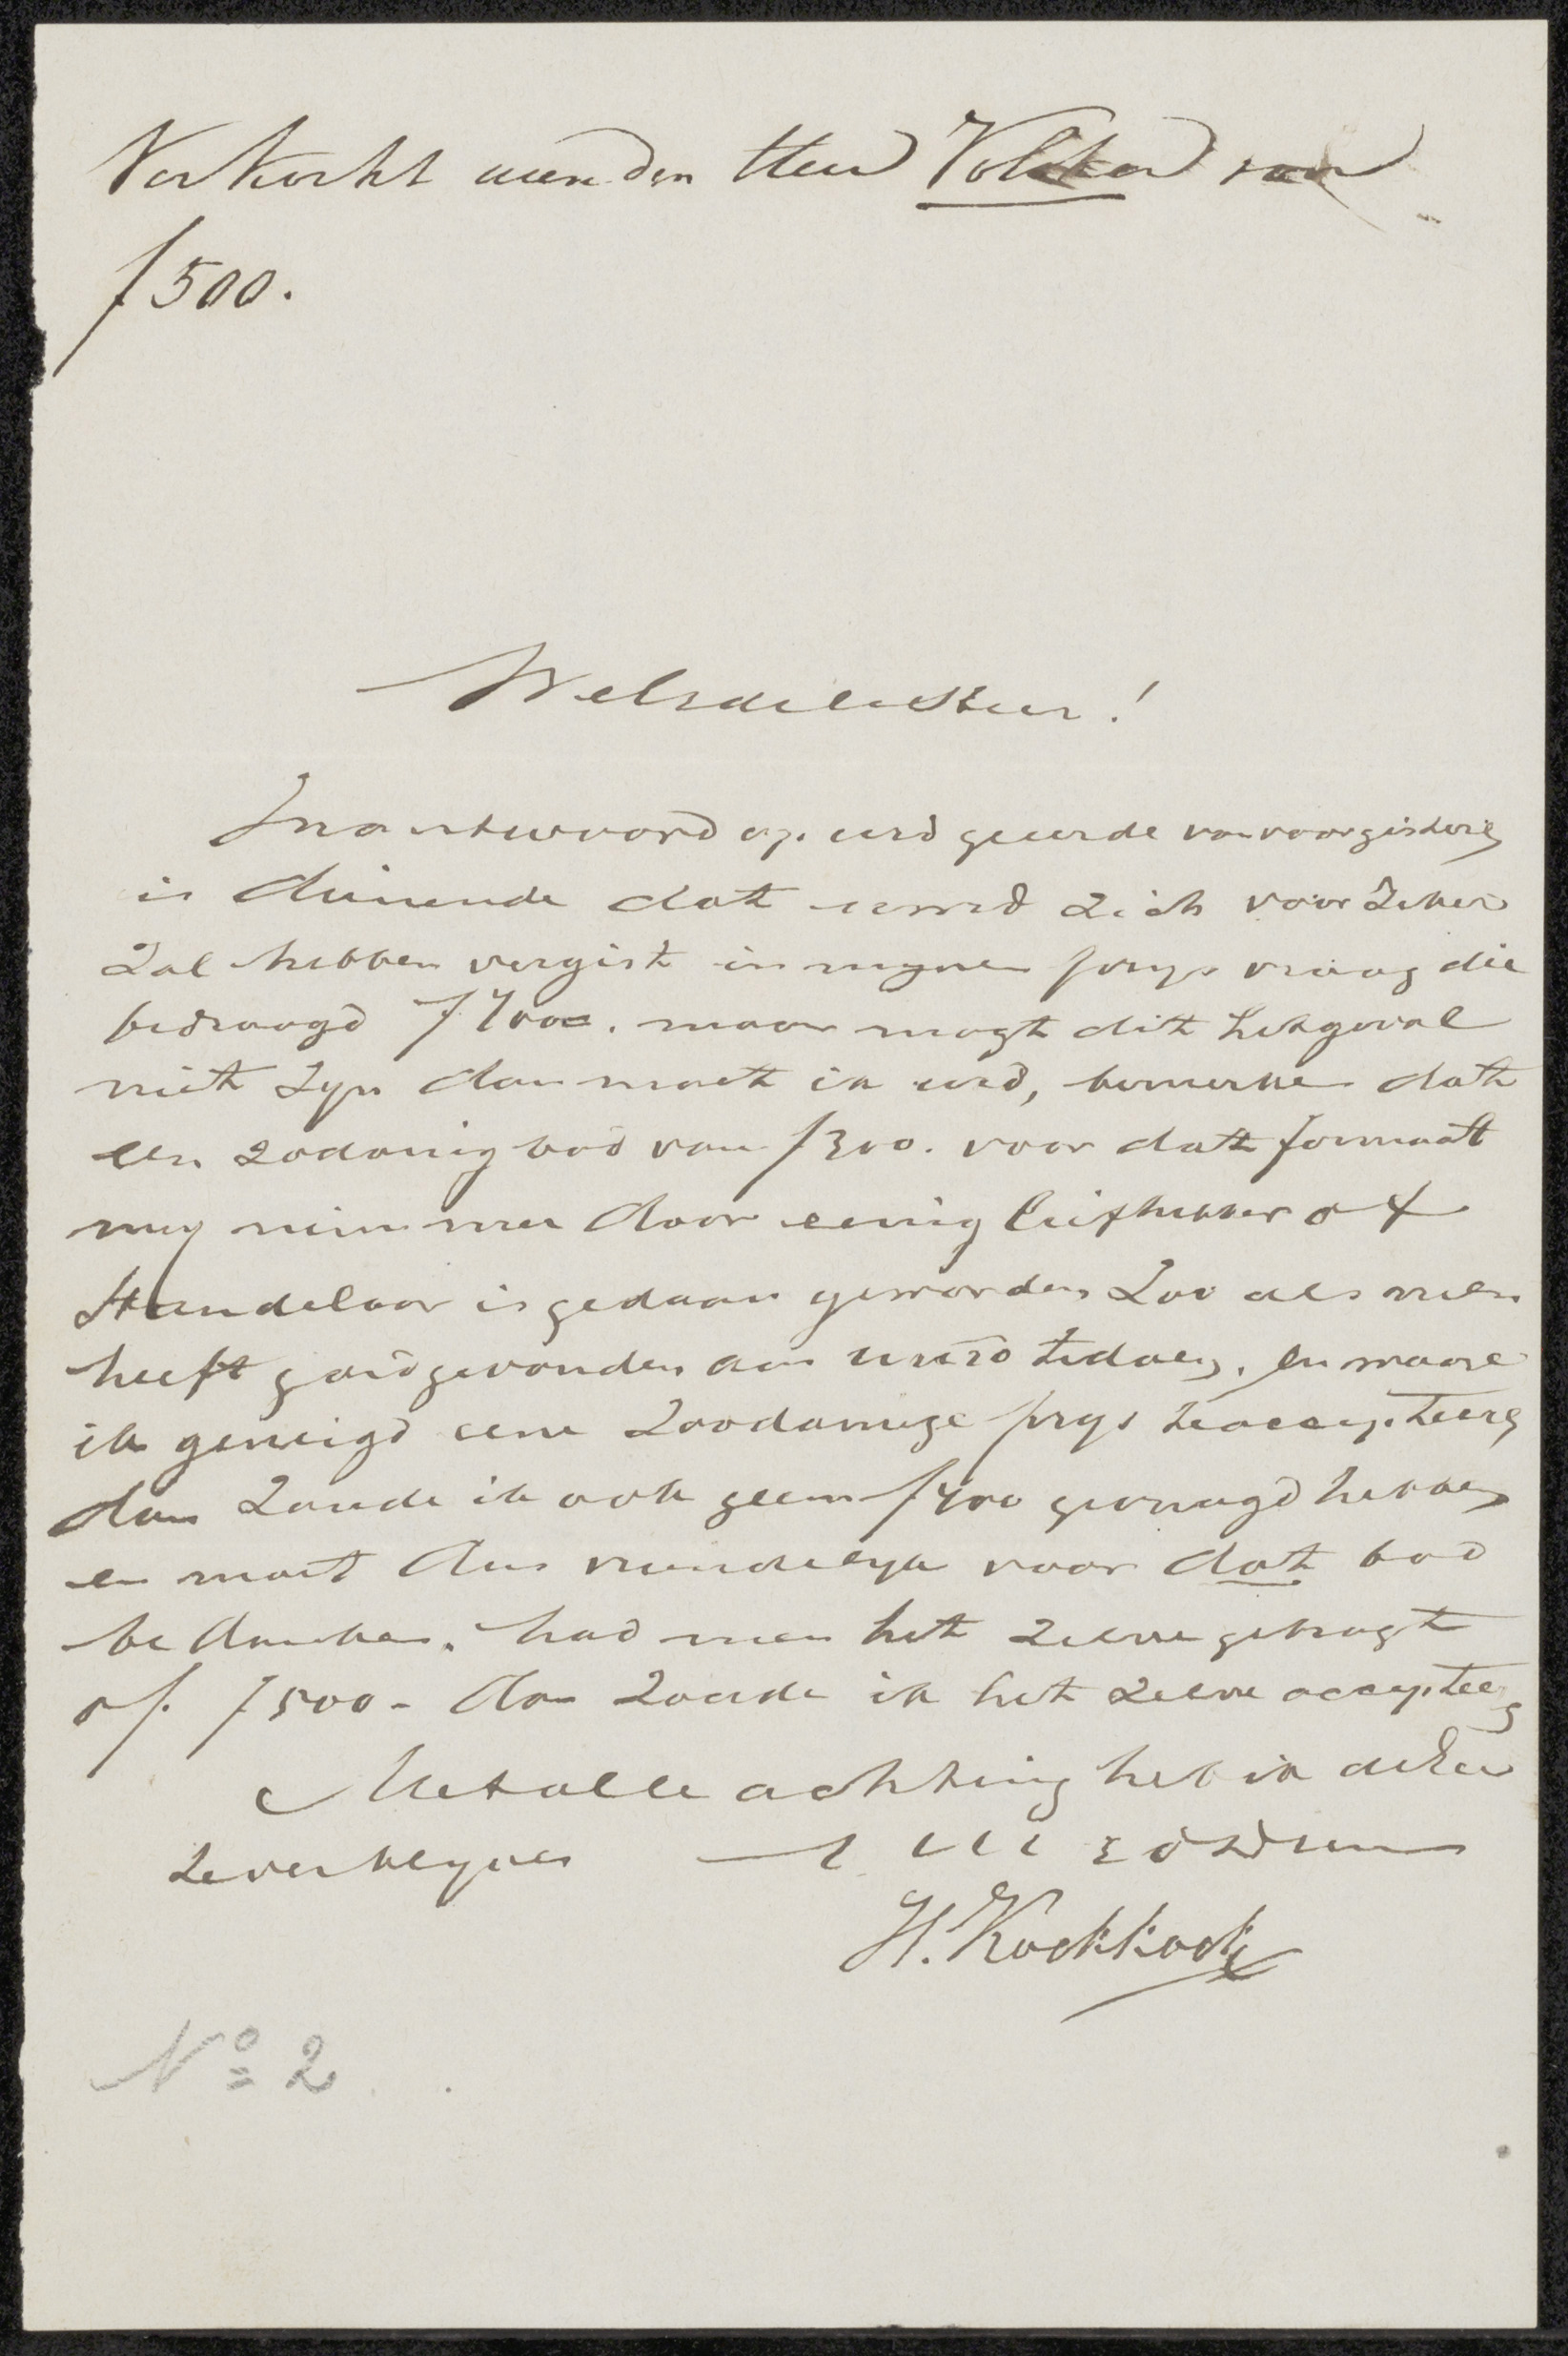 Verkocht aan den Heer Volcker voor
f 500.
Weledele Heer!
In antwoord op uwd geeerde van voorgisteren
is dienende dat uwed zich voor zeker
zal hebben vergist in mynen prys vraag die
bedraagd f 700=. maar mogt dit het geval
niet zyn dan moet ik uwd, bemerken dat
een zodanig bod van f 300. voor dat formaatt
my nimmer door eenig liefhebber of
Handelaar is gedaan geworden Zoo als men
heeft goedgevonden aan uwed te doen. en waare
ik geneigd eene Zoodanige prys te accepteeren
dan Zoude ik ook geen f 700 gevraagd hebben
en moet dus vriendelyk voor dat bod
bedanken. had men het zelve gebragt
op f 500- dan Zoude ik het zelve accepteeren
Met alle achting heb ik de Eer
te verblyven
H. Koekkoek
No 2